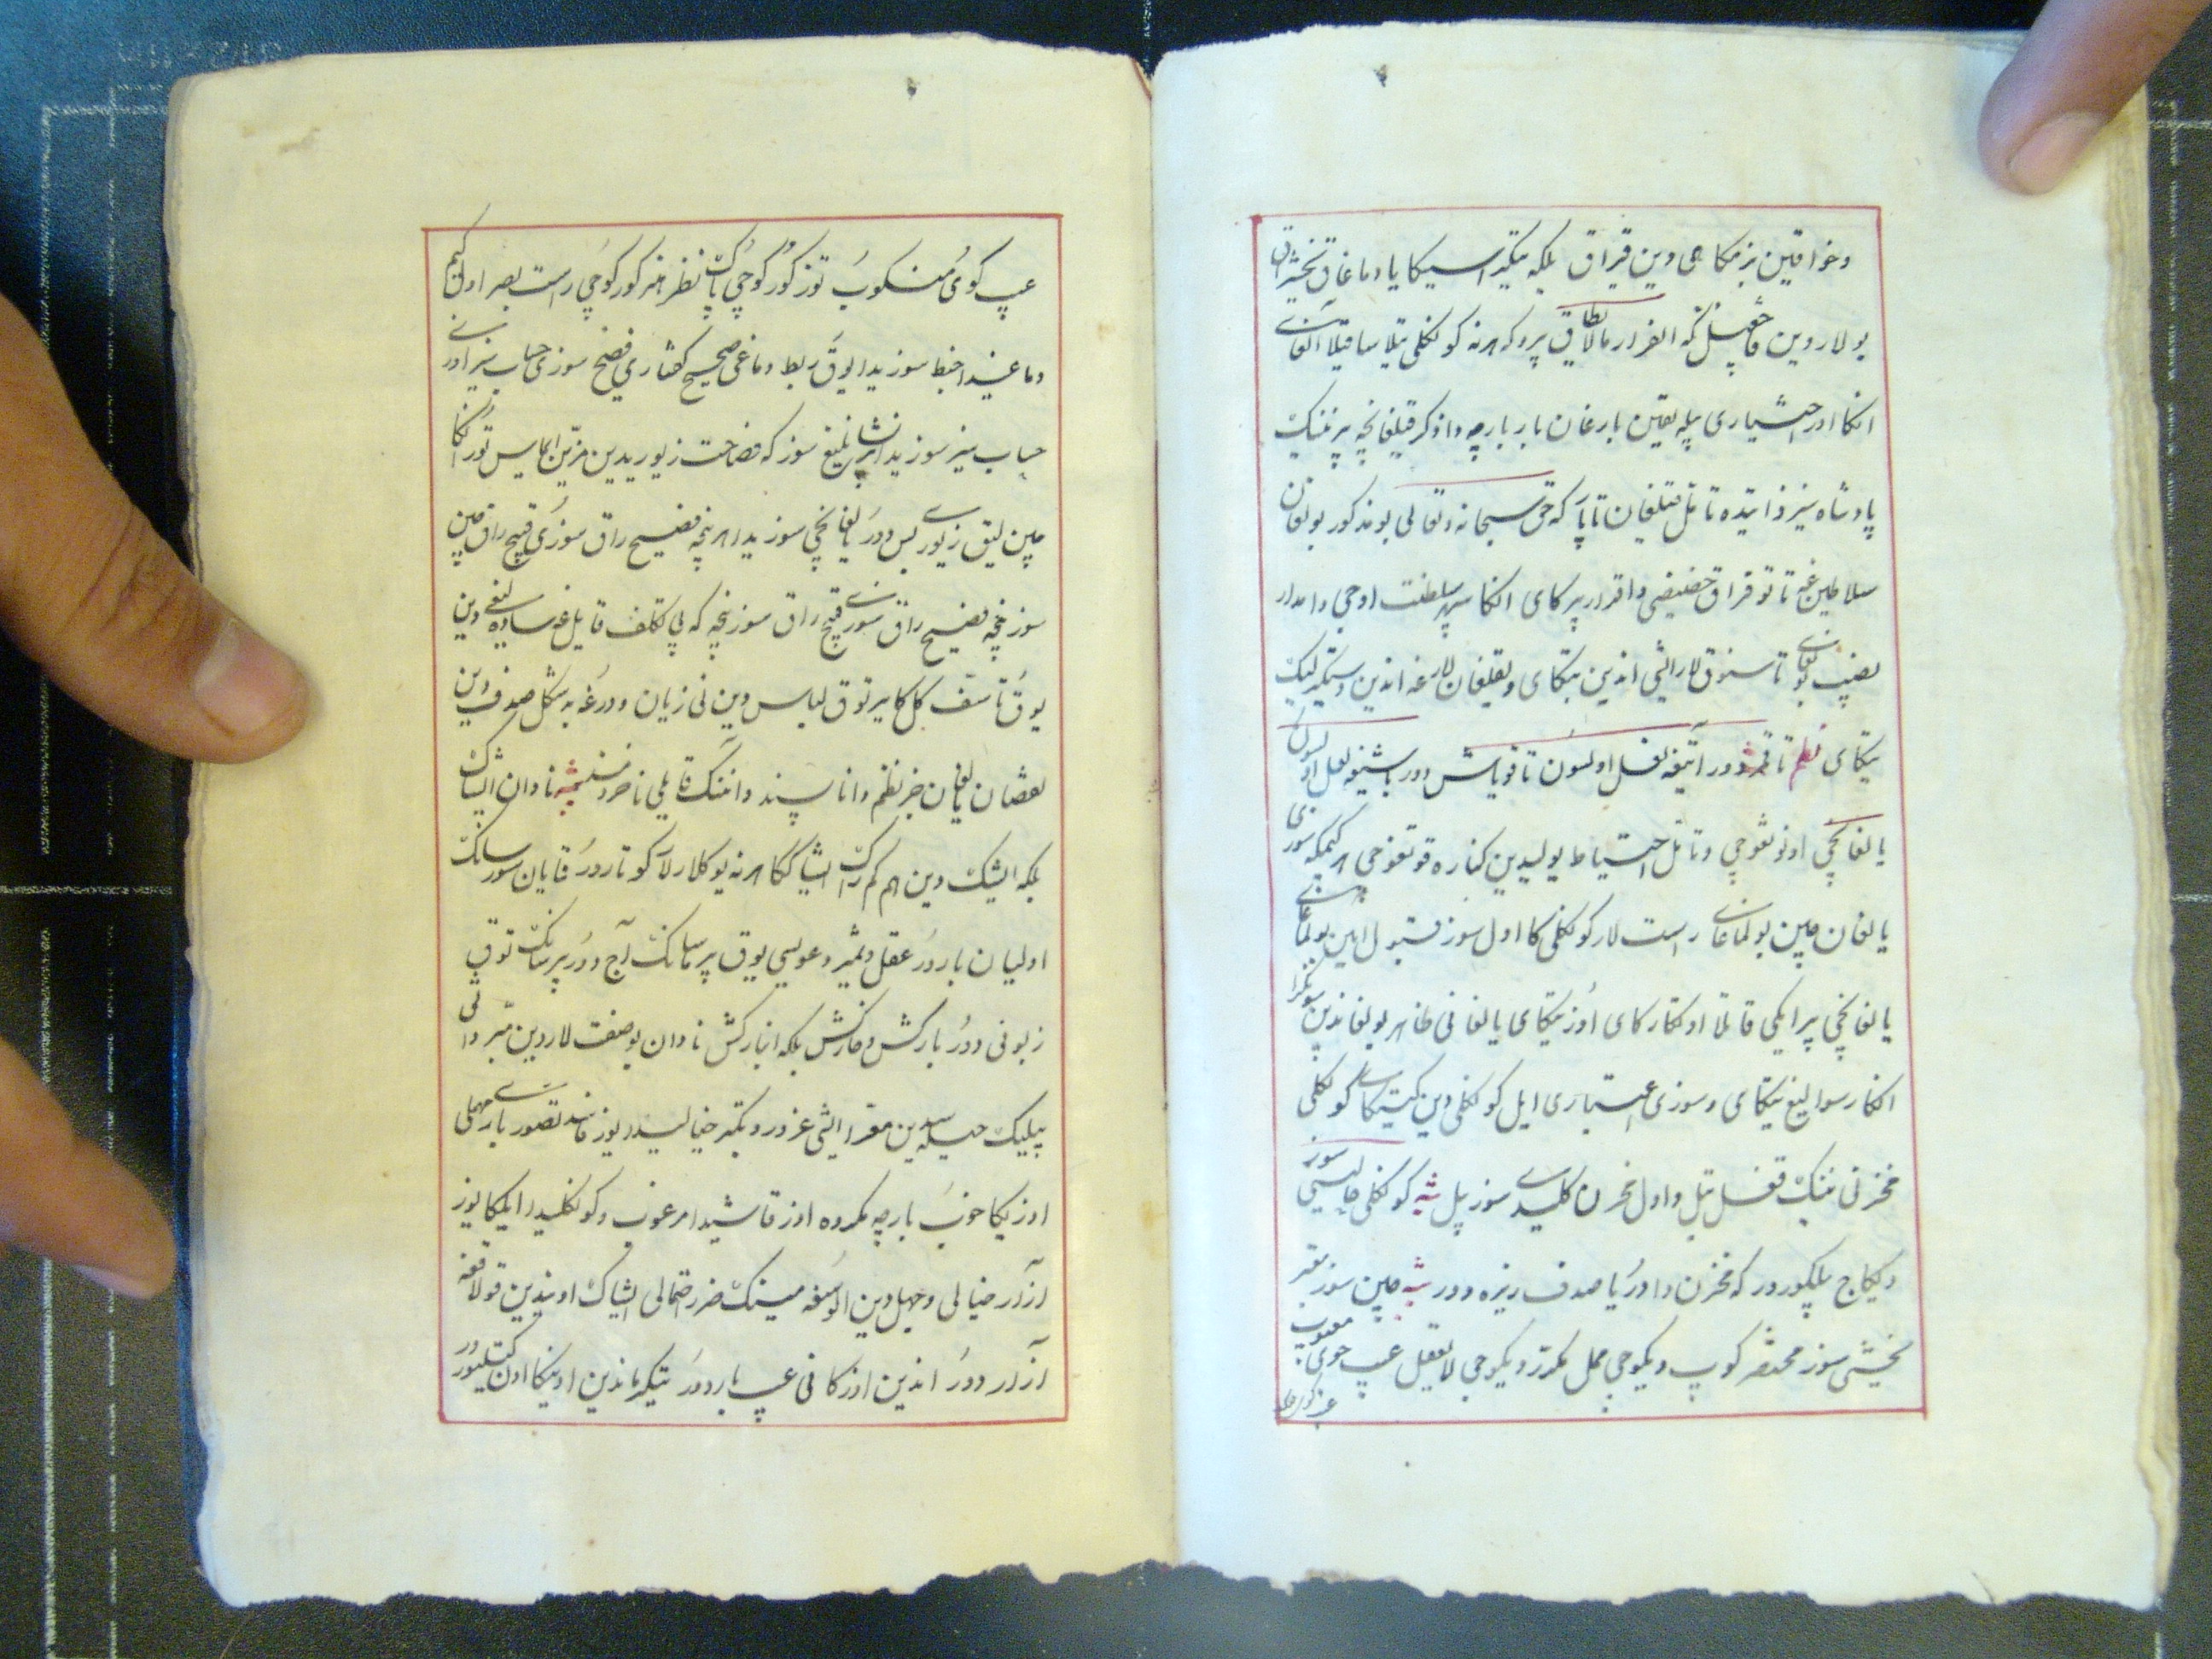 وخواقین بزمکاهی دین قیراق بلکه تیکراسیکا یاوماغاق یخشیراق
بولاردین قاچقیل که الفرار مالایطاق بیرو که هرنه کونکلی تیلاسا قیلا الغای
انکا اوز اختیاری بیله یقین بارغان بار بارچه دا ذکر قیلغانچه بیرنینک
پادشاه نیز ذاتیده تامل قیلغان تاپار که حق سبحانه وتعالی بو مذکور بولغان
سلاطین غه تا توفراق حضیضی دا قرار بیرکای انکا سپهر سلطنت اوجی دا مدار
نصیب بولغای تا سنوق لار ایشی اندین بتکای ویقیلغان لارغه اندین دستکیرلیک
یتکای نظم تا قمردور آتیغه نعل اولسون تا قویاش دور باشیغه لعل اولسون
یالغانچی اونوتغوچی وتامل احتیاط یولیدین کناره توتغوچی هر کیمکه سوزی
یالغان چین بولماغای راست لار کونکلی کا اول سوز قبول ایین بولماغای
یالغانچی بیر ایکی قاتلا اوتکارکای اوز یتکای یالغانی ظاهر بولغاندین سونکرا
انکا رسوالیغ یتکای وسوزی اعتباری ایل کونکلی دین کیتکای کونکلی
مخزنی نینک قفل تیل و اول مخزن کلیدی سوز بیل تنبیه کونکلی چالیسی سوز
دیکاچ بیلکورور که مخزن دا دُر یا صدف ریزه دور تنبیه چین سوز معتبر
یخشی سوز مختصر کوب دیکوچی ممل مکرر دیکوچی لایعقل عیب جوی معیوب
عیب کوی منکوب توز کورکوچی پاک نظر هنر کورکوچی راست بصر اول کیم
دماغیدا خبط سوزیدا یوق ربط دماغی صحیح کفتاری فصیح سوزی حساب سیز اوزی
حساب سیز سوزیدا پریشانلیغ سوز که فصاحت زیوریدین مزین ایماس تور انکا
چین لیق زیوری بس دور یالغانچی سوزیدا هرنچه فصیح راق سوزی قبیح راق چین
سوز نیچه فصیح راق سوزی قبیح راق سوز نیچه که بی تکلف قایل غه ساده لیغی دین
یوق تاسف کل کا ییرتوق لباس دین نی زیان ودرغه بدشکل صدف دین
نقصان یالغان جز نظم دا ناپسند دا نینک قایلی ناخردمند تنبیه نادان ایشاک
بلکه ایشک دین هم کم راک ایشاککا هرنه یوکلارلار کوتارور قایان سورسانک
اولیان بارور عقل وتمیز دعویسی یوق بیرسانک آچ دور بیرسانک توق
زبونی دور بارکش وخارکش بلکه انبارکش نادان بو صفت لاردین مبرا ذاتی
بیلیک حیله سیدین معرا ایشی غرور وتکبر خیالیدا یوز فاسد تصور باری جهلی
اوزیکا خوب بارچه مکروه اوز قاشیدا مرغوب وکونکلیدا ایلکا یوز
آزار خیالی وجهلدین اولوسغه مینک ضرر احتمالی ایشاک اونیدین قولاقغه
آزار دور اندین اوزکا نی عیب بار دور تیکرماندین اوینکا اون کیلتورور